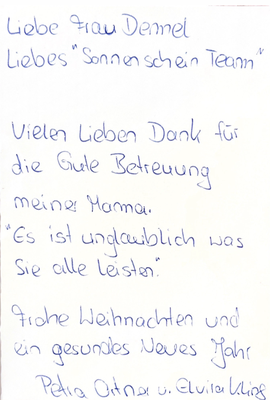 Liebe Frau Demmel
Liebes "Sonnenschein Team"
Vielen Lieben Dank für
die Gute Betreuung
meiner Mama.
"Es ist unglaublich was
Sie alle leisten."
Frohe Weihnachten und
ein gesundes Neues Jahr
Petra Ortner u. Elvira Kling